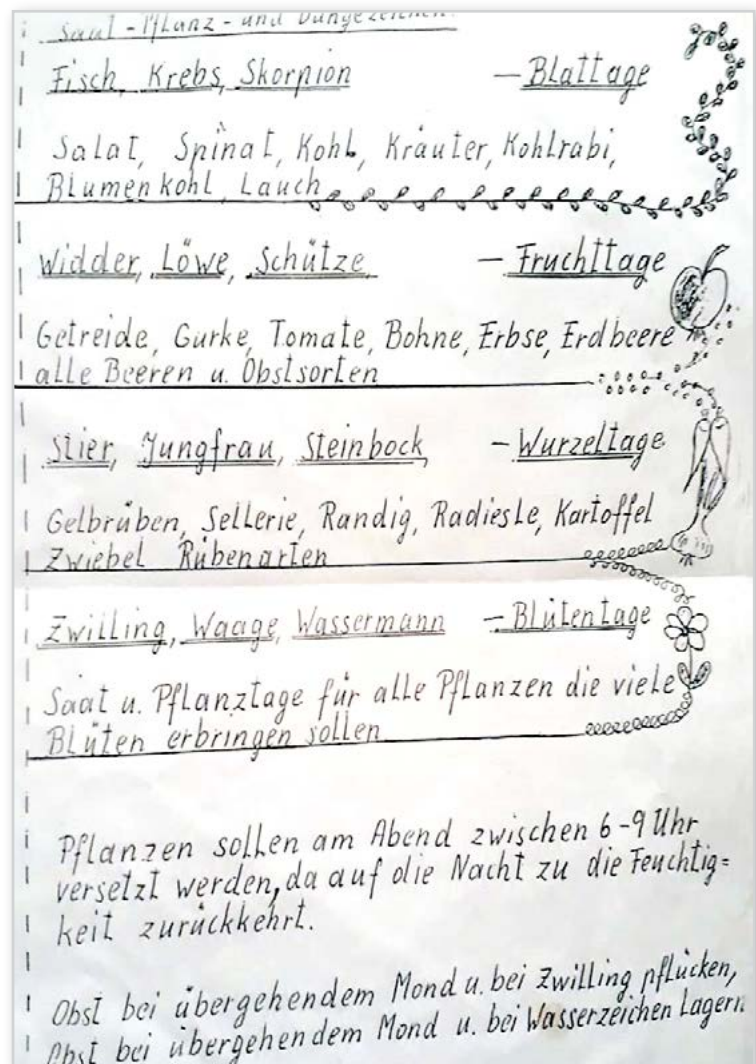 Saat-Pflanz-und Düngezeichen.
Fisch, Krebs, Skorpion - Blattage
Salat, Spinat, Kohl, Kräuter, Kohlrabi,
Blumenkohl, Lauch
Widder, Löwe, Schütze, - Fruchttage
Getreide, Gurke, Tomate, Bohne, Erbse, Erdbeere
alle Beeren u. Obstsorten
Stier, Jungfrau, Steinbock, - Wurzeltage
Gelbrüben, Sellerie, Randig, Radiesle, Kartoffel
Zwiebel Rübenarten
Zwilling, Waage, Wassermann - Blütentage
Saat u. Pflanztage für alle Pflanzen die viele
Blüten erbringen sollen
Pflanzen sollen am Abend zwischen 6-9 Uhr
versetzt werden, da auf die Nacht zu die Feuchtig=
keit zurückkehrt.
Obst bei übergehendem Mond u. bei Zwilling pflücken,
Obst bei übergehendem Mond u. bei Wasserzeichen Lagern